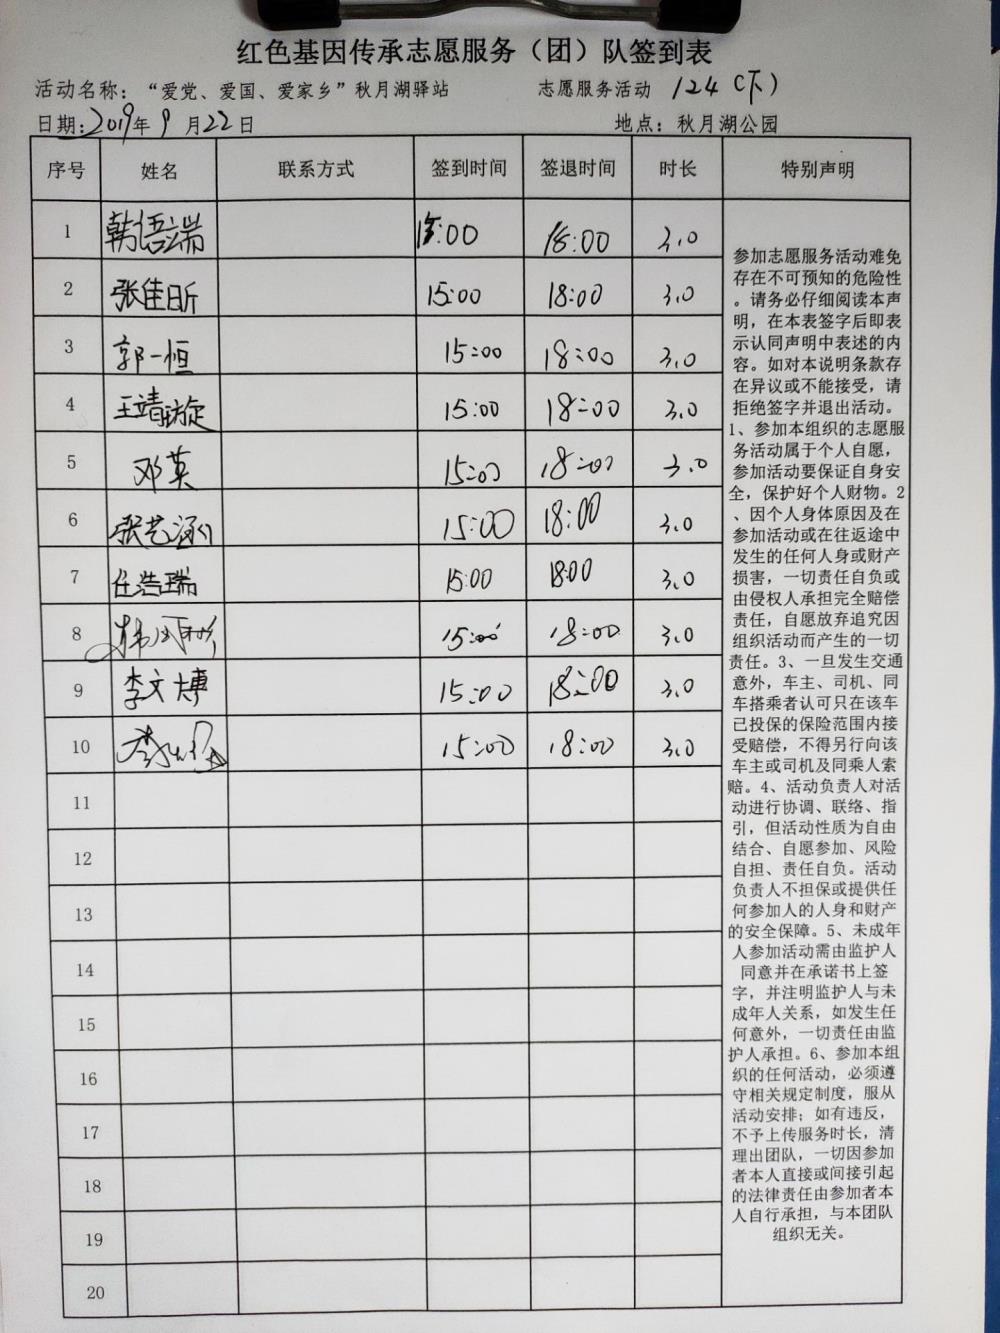 红色基因传承志愿服务（团）队签到表
活动名称：“爱党、爱国、爱家乡”秋月湖驿站 志愿服务活动 124（下）
日期:2019年9月22日 地点：秋月湖公园
序号 姓名 联系方式 签到时间 签退时间 时长 特别声明
1 韩语端 15:00 18:00 3.0
2 张佳昕 15:00 18:00 3.0
3 郭一恒 15:00 18:00 3.0
4 王靖璇 15:00 18:00 3.0
5 邓英 15:00 18:00 3.0
6 张艺涵 15:00 18:00 3.0
7 任浩瑞 15:00 18:00 3.0
8 15:00 18:00 3.0
9 李文博 15:00 18:00 3.0
10 15:00 18:00 3.0
11
12
13
14
15
16
17
18
19
20
参加志愿服务活动难免
存在不可预知的危险性
。请务必仔细阅读本声
明，在本表签字后即表
示认同声明中表述的内
容。如对本说明条款存
在异议或不能接受，请
拒绝签字并退出活动。
1、参加本组织的志愿服
务活动属于个人自愿，
参加活动要保证自身安
全，保护好个人财物。2
、因个人身体原因及在
参加活动或在往返途中
发生的任何人身或财产
损害，一切责任自负或
由侵权人承担完全赔偿
责任，自愿放弃追究因
组织活动而产生的一切
责任。3、一旦发生交通
意外，车主、司机、同
车搭乘者认可只在该车
已投保的保险范围内接
受赔偿，不得另行向该
车主或司机及同乘人索
赔。4、活动负责人对活
动进行协调、联络、指
引，但活动性质为自由
结合、自愿参加、风险
自担、责任自负。活动
负责人不担保或提供任
何参加人的人身和财产
的安全保障。5、未成年
人参加活动需由监护人
同意并在承诺书上签
字，并注明监护人与未
成年人关系，如发生任
何意外，一切责任由监
护人承担。6、参加本组
织的任何活动，必须遵
守相关规定制度，服从
活动安排；如有违反，
不予上传服务时长，清
理出团队，一切因参加
者本人直接或间接引起
的法律责任由参加者本
人自行承担，与本团队
组织无关。